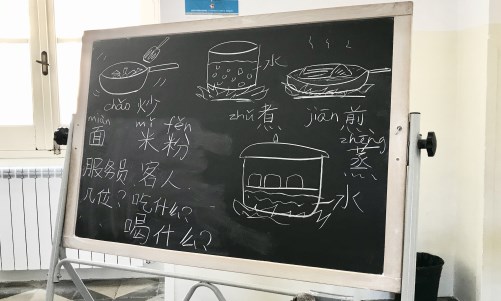 水
chǎo 炒
zhǔ 煮
jiān 煎
miàn mǐ fěn
面 米 粉
zhēng
蒸
服务员 客人
水
几位？吃什么？
喝什么？